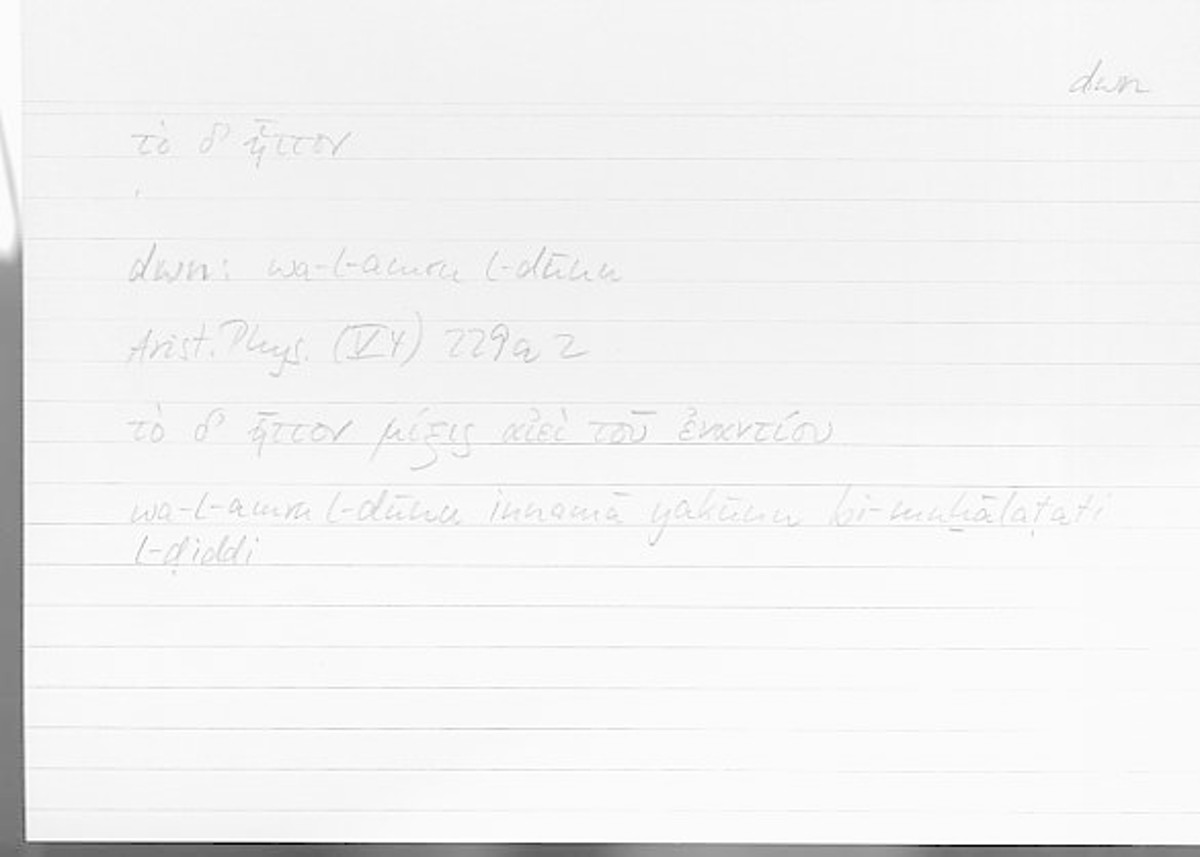 dwn
τὸ δ' ἧττον
dwn: wa-l-amru l-dūnu
Arist. Phys. (V 4) 229a 2
τὸ δ' ἧττον μίξις αἰεὶ τοῦ ἐναντίου
wa-l-amru l-dūnu innamā yakūnu bi-muḫālaṭati
l-ḍiddi